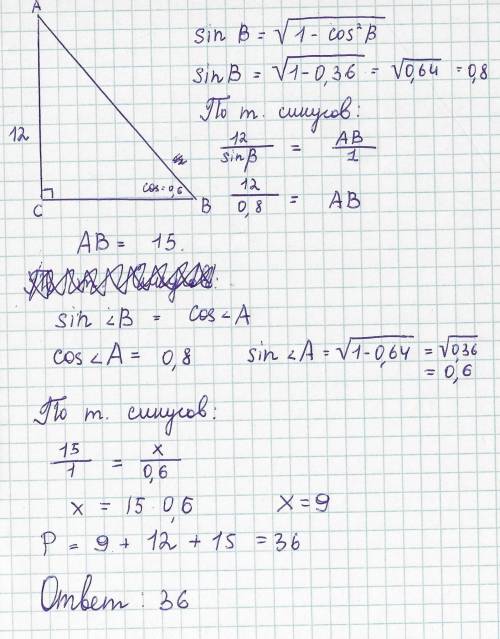 A
12
C
cos=0,6
B
sin B = √1 - cos²B
sin B = √1 - 0,36 = √0,64 = 0,8
По т. синусов:
12/sinβ = AB/1
12/0,8 = AB
AB = 15.
sin ∠B = cos ∠A
cos ∠A = 0,8 sin ∠A = √1-0,64 = √0,36
= 0,6
По т. синусов:
15/1 = x/0,6
x = 15 · 0,6 x = 9
P = 9 + 12 + 15 = 36
Ответ : 36